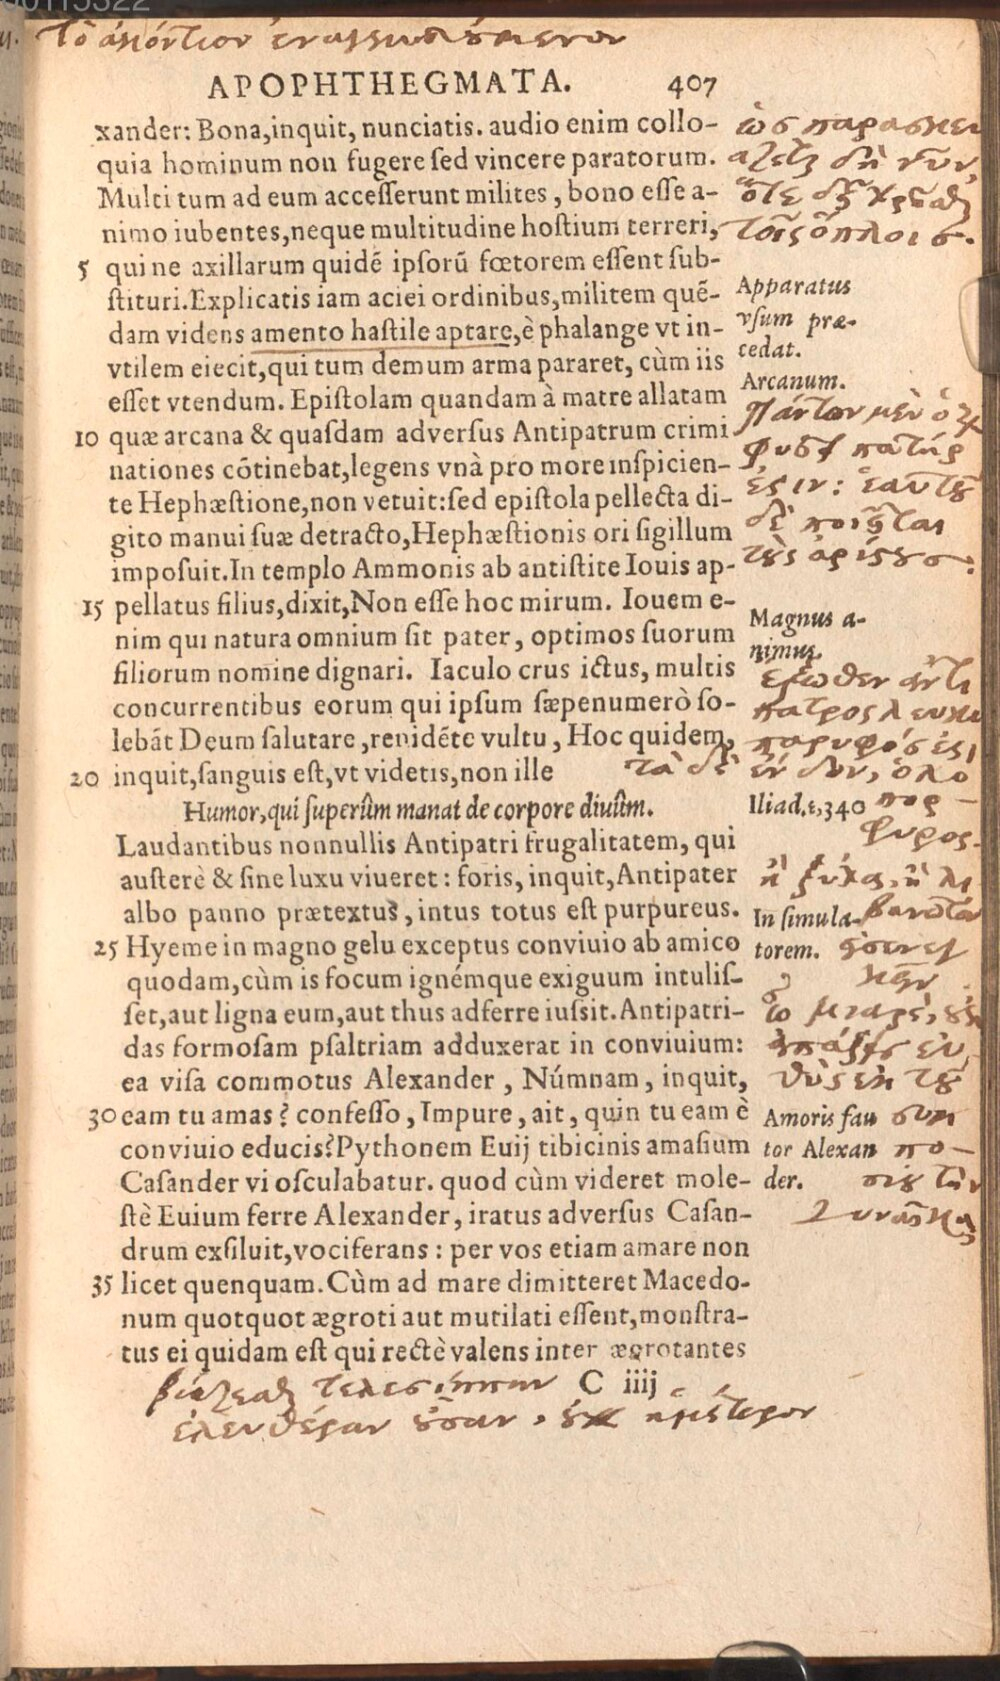 τὸ ἀκόντιον ἐναγκυλούμενον
APOPHTHEGMATA. 407
xander: Bona,inquit, nunciatis. audio enim collo-
quia hominum non fugere ſed vincere paratorum.
Multi tum ad eum acceſſerunt milites, bono eſſe a-
nimo iubentes,neque multitudine hoſtium terreri,
5 qui ne axillarum quidē ipſorū fœtorem eſſent ſub-
ſtituri.Explicatis iam aciei ordinibus,militem quē-
dam videns amento haſtile aptare,è phalange vt in-
vtilem eiecit,qui tum demum arma pararet, cùm iis
eſſet vtendum. Epiſtolam quandam à matre allatam
10 quæ arcana & quaſdam adverſus Antipatrum crimi
nationes cōtinebat,legens vnà pro more inſpicien-
te Hephæſtione,non vetuit:ſed epiſtola pellecta di-
gito manui ſuæ detracto,Hephæſtionis ori ſigillum
impoſuit.In templo Ammonis ab antiſtite Iouis ap-
15 pellatus filius,dixit,Non eſſe hoc mirum. Iouem e-
nim qui natura omnium ſit pater, optimos ſuorum
filiorum nomine dignari. Iaculo crus ictus, multis
concurrentibus eorum qui ipſum ſæpenumerò ſo-
lebāt Deum ſalutare,renidēte vultu, Hoc quidem,
20 inquit,ſanguis eſt,vt videtis,non ille
Humor,qui ſuperûm manat de corpore diuûm.
Laudantibus nonnullis Antipatri frugalitatem, qui
auſterè & ſine luxu viueret: foris, inquit,Antipater
albo panno prætextus, intus totus eſt purpureus.
25 Hyeme in magno gelu exceptus conviuio ab amico
quodam,cùm is focum ignémque exiguum intuliſ-
ſet,aut ligna eum,aut thus adferre iuſsit.Antipatri-
das formoſam pſaltriam adduxerat in conviuium:
ea viſa commotus Alexander, Númnam, inquit,
30 eam tu amas? confeſſo, Impure, ait, quin tu eam è
conviuio educis?Pythonem Euij tibicinis amaſium
Caſander vi oſculabatur. quod cùm videret mole-
ſtè Euium ferre Alexander, iratus adverſus Caſan-
drum exſiluit,vociferans: per vos etiam amare non
35 licet quenquam.Cùm ad mare dimitteret Macedo-
num quotquot ægroti aut mutilati eſſent,monſtra-
tus ei quidam eſt qui rectè valens inter ægrotantes
C iiij
ἐλευθέραν οὖσαν,
ὡς παρασκευ
άζεις δὴ νῦν,
ὅτε δεῖ χρῆσθαι
τοῖς ὅπλοις.
Apparatus
vſum præ-
cedat.
Arcanum.
Πάντων μὲν ὁ ζ
φύσει πατήρ
ἐστιν: ἑαυτοῦ
δὲ ποιεῖται
τοὺς ἀρίστους.
Magnus a-
nimus.
ἔξωθεν ἀντί
πατρος λευκο
πάρυφός ἐστι
τὰ δὲ ἔνδον, ὁλο
πορ-
φυρος.
Iliad.ε,340
ἢ ξύλα, ἢ λι
βανωτὸν
In ſimula-
torem.
Amoris fau
tor Alexan
der.